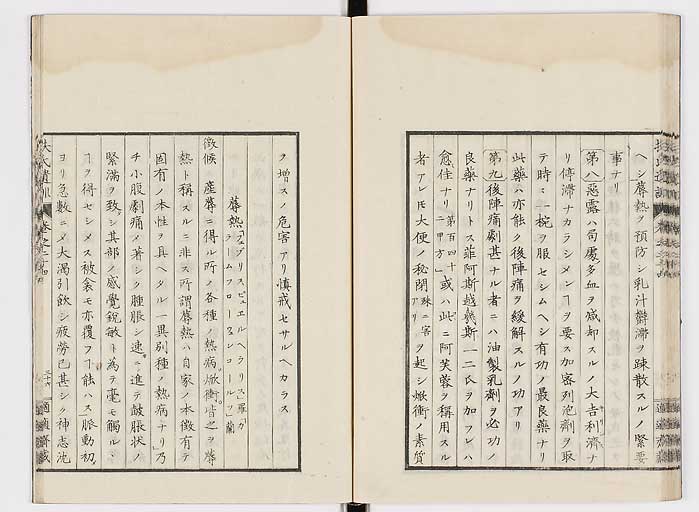 ヘシ蓐熱ヲ預防シ乳汁欝滞ヲ疎散スルノ緊要
事ナリ
第八惡露ハ局處多血ヲ減却スルノ大吉利済ナ
リ停滞ナカラシメンヿヲ要ス加密列泡劑ヲ取
テ時々一椀ヲ服セシムヘシ有功ノ最良藥ナリ
此藥ハ亦能ク後陣痛ヲ緩解スルノ功アリ
第九後陣痛劇甚ナル者ニハ油製乳劑ヲ必功ノ
良藥ナリトス菲阿斯越幾斯一二氏ヲ加フレハ
愈佳ナリ第百四十二甲方或ハ此ニ阿芙蓉ヲ稱用スル
者アレ𪜈大便ノ秘閉殊ニ害アリヲ起シ焮衝ノ素質
ヲ増スノ危害アリ慎戒セサルヘカラス
蓐熱
徴候 産蓐ニ得ル所ノ各種ノ熱病焮衝皆之ヲ蓐
熱ト稱スルニ非ス所謂蓐熱ハ自家ノ本徴有テ
固有ノ本性ヲ具ヘタル一異別種ノ熱病ナリ乃
チ小腹劇痛メ著シク腫脹シ速ニ進テ皷脹状ノ
緊満ヲ致シ其部ノ感覺鋭敏ト為テ毫モ觸ルヽ
ヿヲ得セシメス被衾モ亦覆フヿ能ハス脈動初
ヨリ急數ニメ大渇引飲シ疲勞已甚シク神志沈
扶氏遺訓 巻之二十四
適適齋藏